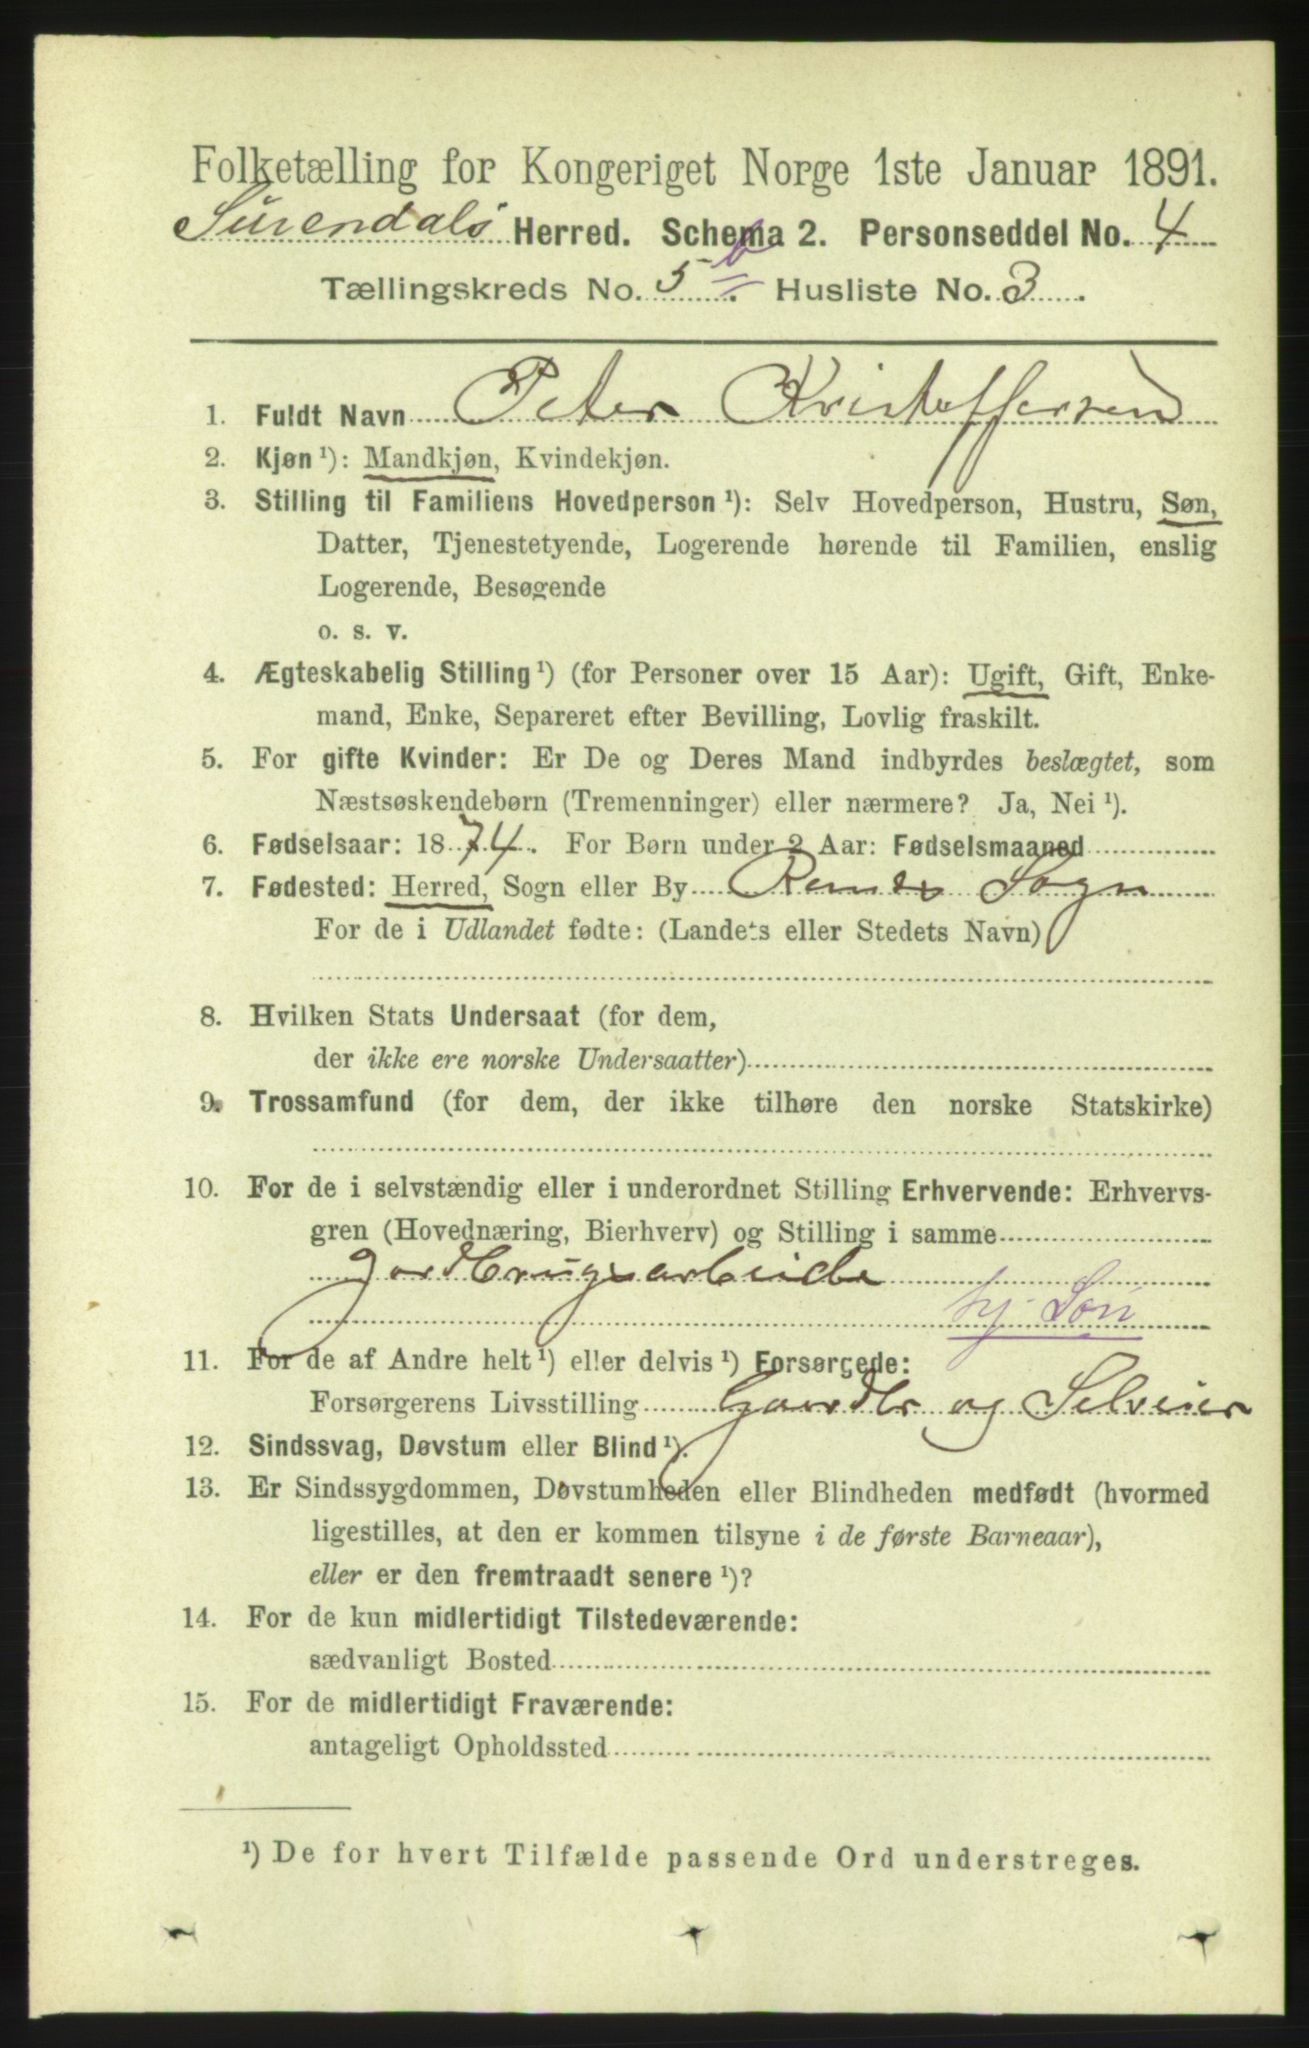 Folketælling for Kongeriget Norge 1ste Januar 1891.
Surendals Herred. Schema 2. Personseddel No. 4
Tællingskreds No. 5 b. Husliste No. 3.
1. Fuldt Navn Peter Kristoffersen
2. Kjøn ¹): Mandkjøn, Kvindekjøn.
3. Stilling til Familiens Hovedperson ¹): Selv Hovedperson, Hustru, Søn,
Datter, Tjenestetyende, Logerende hørende til Familien, enslig
Logerende, Besøgende
o. s. v.
4. Ægteskabelig Stilling ¹) (for Personer over 15 Aar): Ugift, Gift, Enke-
mand, Enke, Separeret efter Bevilling, Lovlig fraskilt.
5. For gifte Kvinder: Er De og Deres Mand indbyrdes beslægtet, som
Næstsøskendebørn (Tremenninger) eller nærmere? Ja, Nei ¹).
6. Fødselsaar: 1874. For Børn under 2 Aar: Fødselsmaaned
7. Fødested: Herred, Sogn eller By Ranes Sogn
For de i Udlandet fødte: (Landets eller Stedets Navn)
8. Hvilken Stats Undersaat (for dem,
der ikke ere norske Undersaatter)
9. Trossamfund (for dem, der ikke tilhøre den norske Statskirke)
10. For de i selvstændig eller i underordnet Stilling Erhvervende: Erhvervs-
gren (Hovednæring, Bierhverv) og Stilling i samme
Jordbrugsarbeide
hj. Søn
11. For de af Andre helt ¹) eller delvis ¹) Forsørgede:
Forsørgerens Livsstilling Gaardbr og Selveier
12. Sindssvag, Døvstum eller Blind ¹).
13. Er Sindssygdommen, Døvstumheden eller Blindheden medfødt (hvormed
ligestilles, at den er kommen tilsyne i de første Barneaar),
eller er den fremtraadt senere ¹)?
14. For de kun midlertidigt Tilstedeværende:
sædvanligt Bosted
15. For de midlertidigt Fraværende:
antageligt Opholdssted
¹) De for hvert Tilfælde passende Ord understreges.